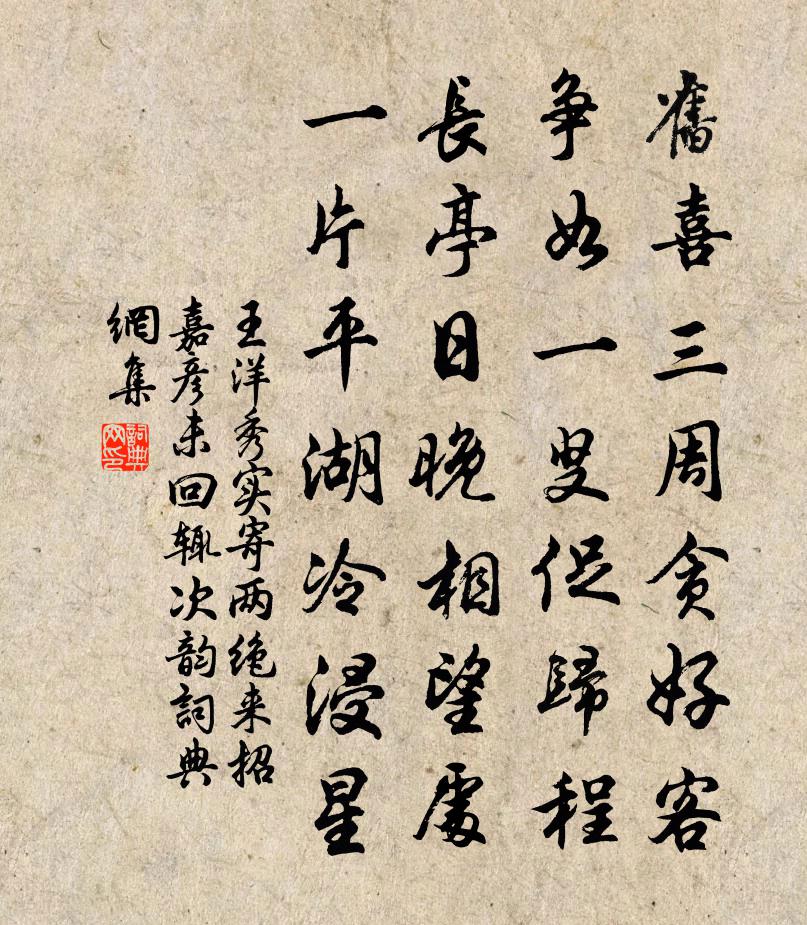 舊喜三周貪好客
争如一叟促歸程
長亭日晚相望處
一片平湖冷浸星
王洋秀实寄两绝来招
嘉彦未回辄次韵詞典
網集